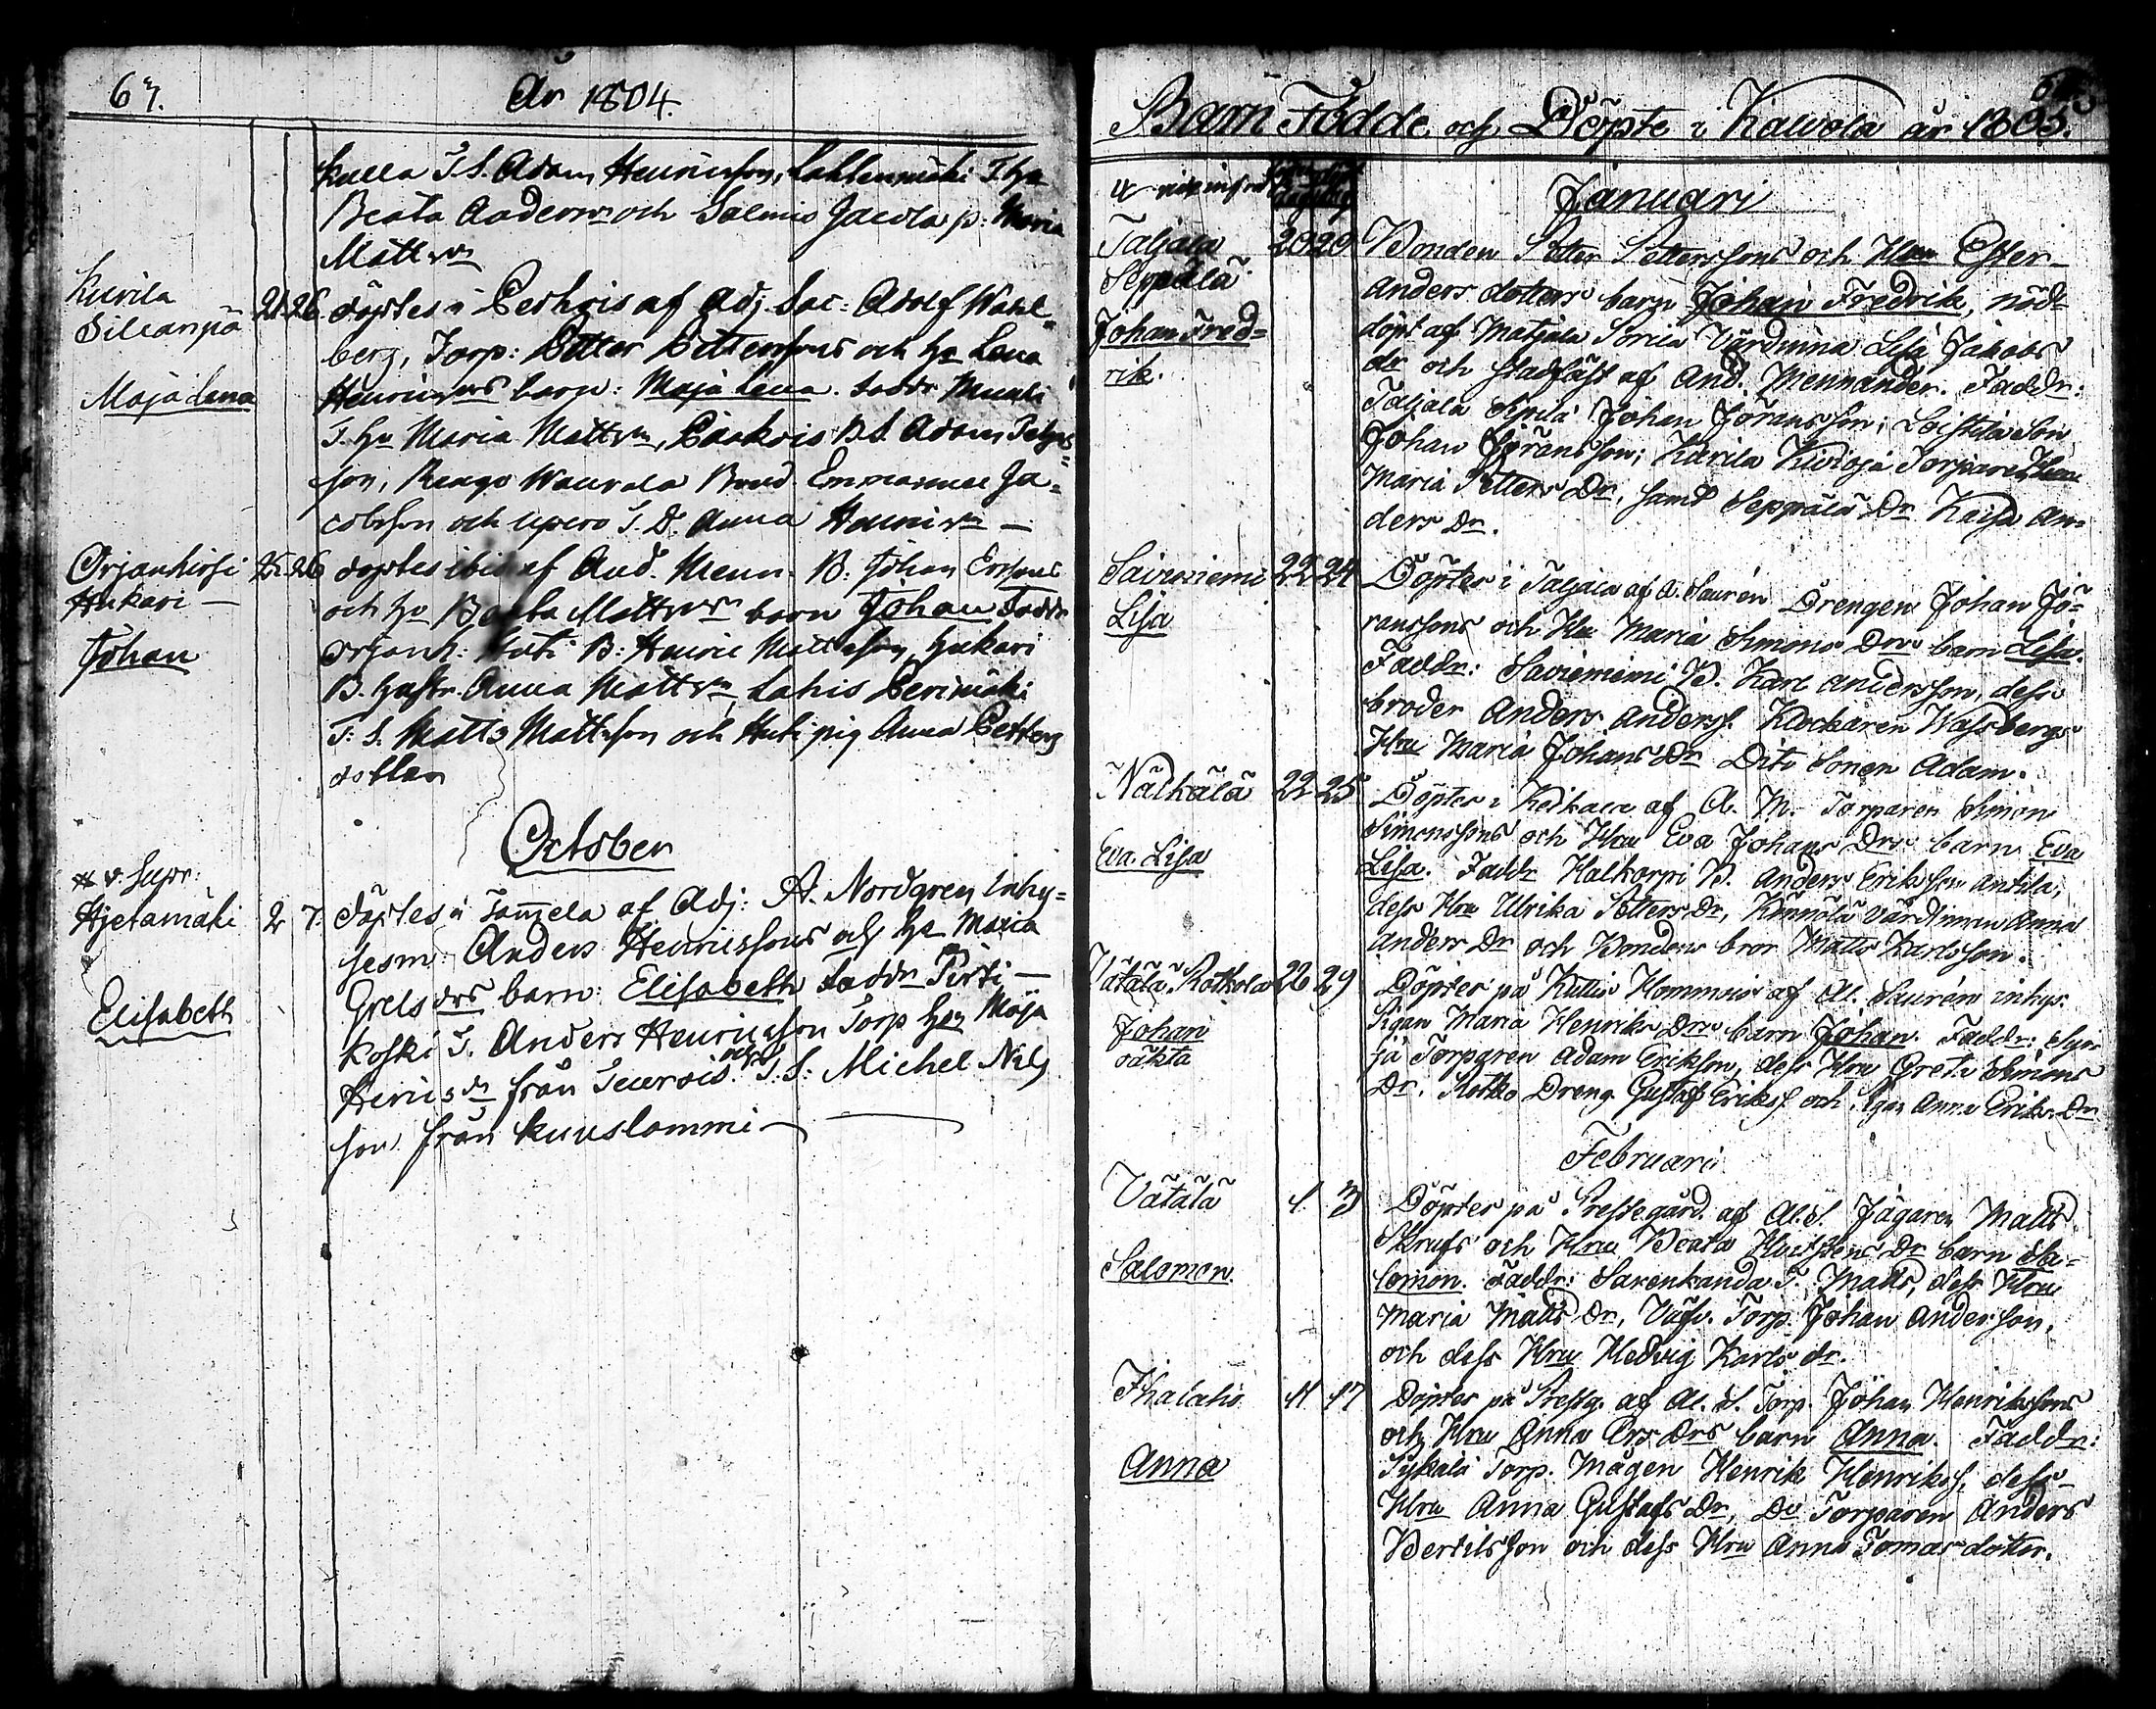 67.
År 1804.
kulla T. S. Adam Henricsson, Lahtenmäki T. hu
Beata Andersdr och Salmis Jacola p: Maria
Mattsdr
Kurila
Sillanpä
Maja Lena
21 26 döptes i Perhois af Adj. Sac: Adolf Wahl-
berg, Torp: Petter Pettersons och hu Lena
Henricsdrs barn: Maja Lena. Faddr
T. hu Maria Mattsdr, B. S. Adam
son, Rengo Bond. Emmanuel Ja-
cobsson och T. D. Anna Henricsdr —
Orjanhirsi
Hukari —
Johan
25 26 döptes ibid af And. Menn. B: Johan Erssons
och hu Beata Mattsdrs barn Johan Faddr
Orjanh: Huti B: Henric Mattsson, Hukari
B. hustr. Anna Mattsdr, Lahis Perimäki
T: S. Matts Mattsson och Huti pig Anna Petters
dotter
October
Hjetamäki
Elisabeth
2 7. döptes i Tammela af Adj: A. Nordgren Inhy-
sesm: Anders Henricssons och hu Maria
Grelsdrs barn: Elisabeth Faddr Pirti-
koski T. Anders Henricsson Torp hu Maja
Henricsdr från och T: S: Michel Nils
son från kuuslammi —
Barn Födde och Döpte i Kalvola år 1805.
Januari
Taljala
Seppälä
Johan Fred=
rik.
20 20 Bonden Petter Petterssons och Hru Ester
Anders dotters barn Johan Fredrik, nöd=
döpt af Matjala Sorila Värdinna Lisa Jakobs
dr och stadfäst af And. Mennander. Faddr:
Taljala Sipilä Johan Jöransson; Leistilä Son
Johan Jöransson; Kurila Torpare Hru
Maria Petters Dr, samt Seppälä Dr Kaisa An=
ders Dr.
Savieniemi
Lisa
22 24 Döptes i Taljala af A. Saurén Drengen Johan Jö=
ranssons och Hru Maria Simons Drs barn Lisa.
Faddr: Savieniemi B. Karl Andersson, dess
broder Anders Anderss. Klockaren Wassbergs
Hru Maria Johans Dr Dito Sonen Adam.
Nälkälä
Eva Lisa
22 25 Döptes i Keikala af A. M. Torparen Simon
Simonssons och Hru Eva Johans Drs barn Eva
Lisa. Faddr Halkorpi B. Anders Eriksson Antila,
dess Hru Ulrika Petters Dr, Könnölä Värdinnan Anna
Anders Dr och Bondens bror Matts Karlsson.
Vätälä Kotkola
Johan
oäkta
22 29 Döptes på Kutis Hommois af Al. Saurén inhys.
Pigan Maria Henriks Drs barn Johan. Faddr: Syr-
jä Torparen Adam Eriksson, dess Hru Greta Simons
Dr. Kotko Dreng Gustaf Erikss. och Pigan Anna Eriks Dr
Februari
Vätälä
Salomon.
1 3 Döptes på Prestegård. af Al. S. Jägaren Matts
Skrufs och Hru Beata Dr barn Sa=
lomon. Faddr: Sarenkanda T. Matts, dess Hru
Maria Matts Dr, Torp. Johan Andersson,
och dess Hru Hedvig Karls dr.
Ihalahs
Anna
11 17 Döptes på Prestg. af Al. S. Torp. Johan Henrikssons
och Hru Anna Ers Drs barn Anna. Faddr:
Pykälä Torp. Mågen Henrik Henrikss. dess
Hru Anna Gustafs Dr, Do Torparen Anders
Bertilsson och dess Hru Anna Tomas dotter.